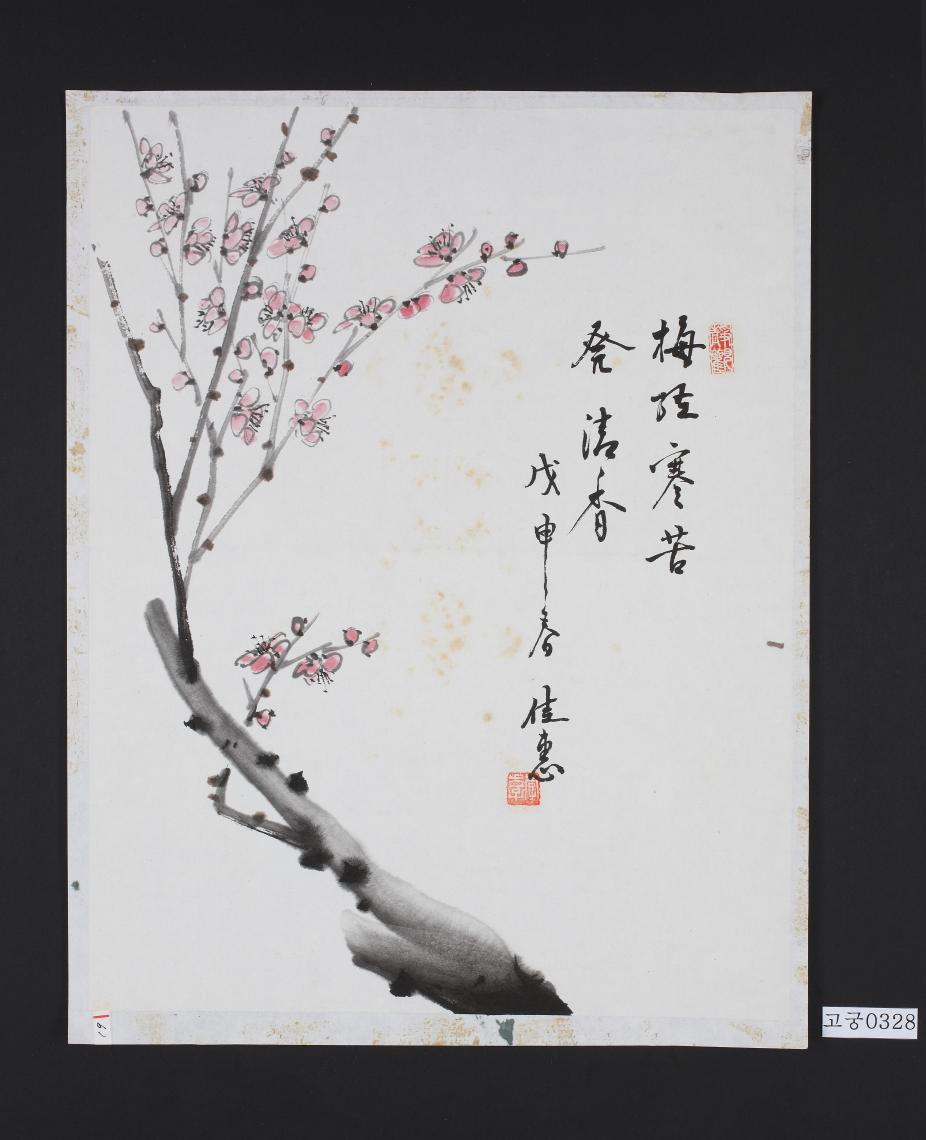 梅經寒苦
発清香
戊申春 佳惠
고궁0328
61